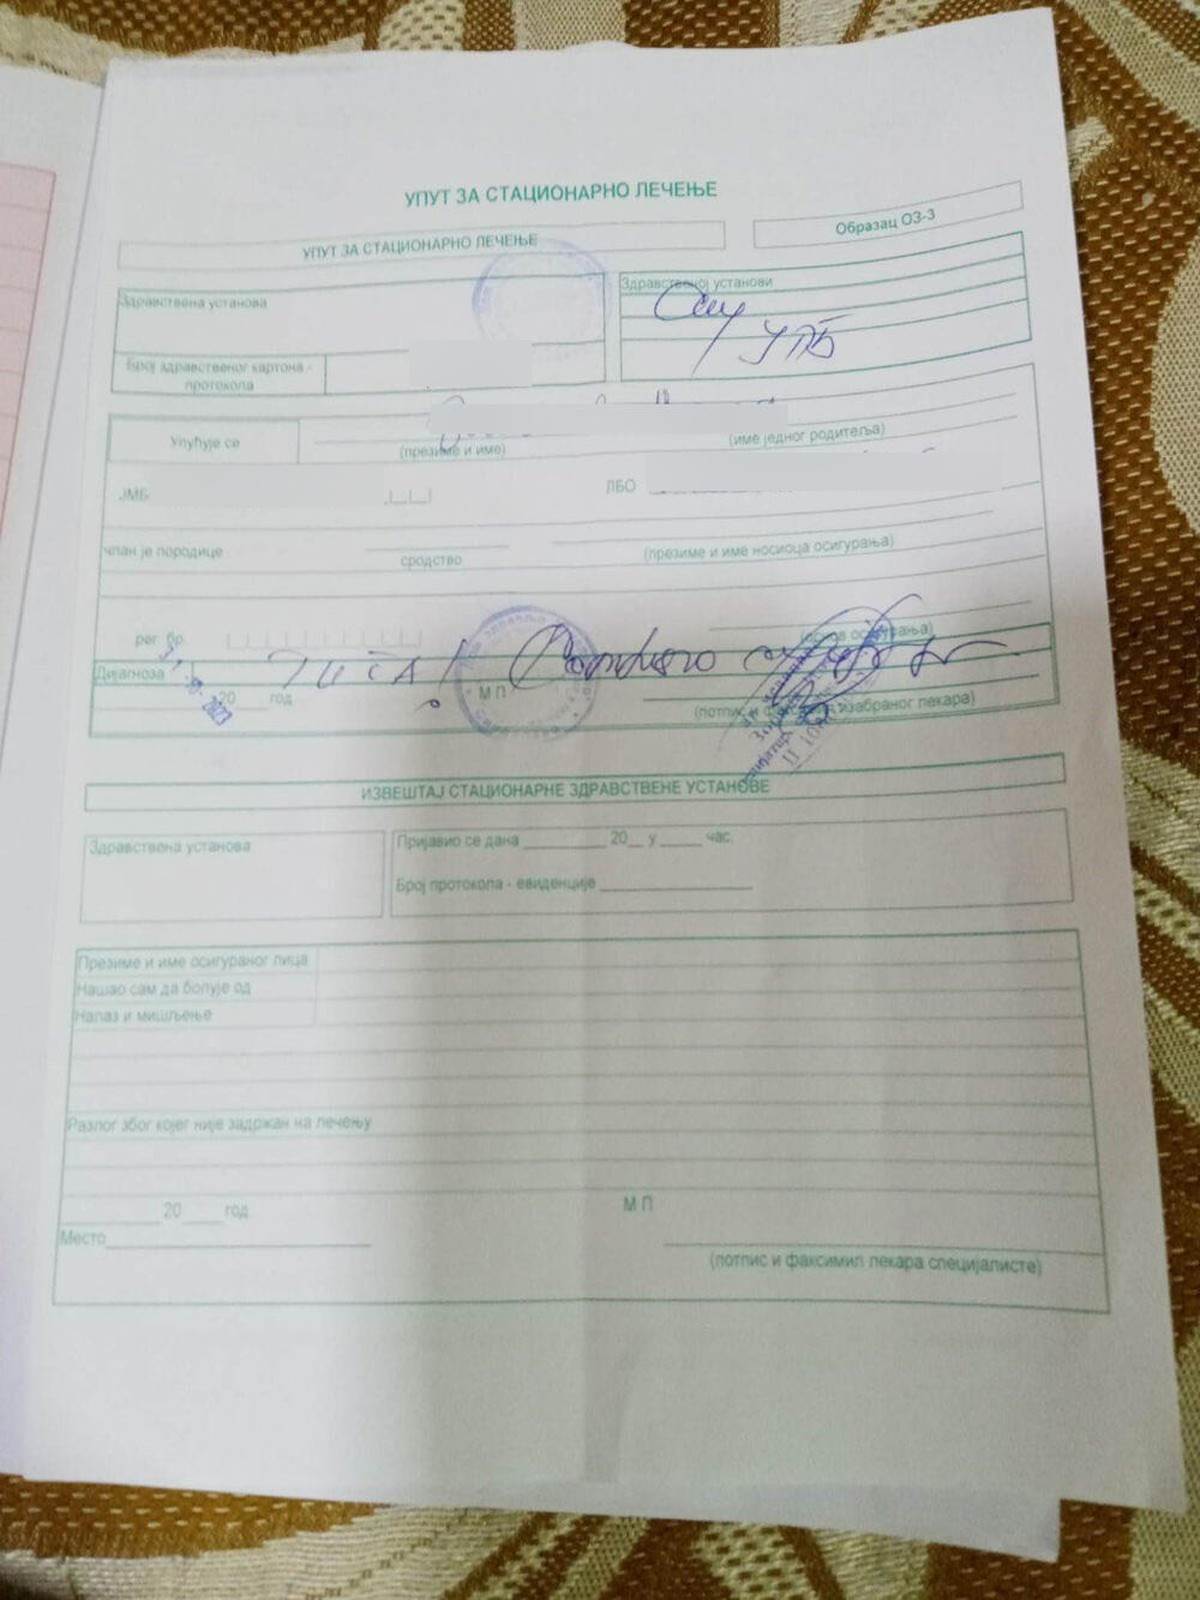 УПУТ ЗА СТАЦИОНАРНО ЛЕЧЕЊЕ
УПУТ ЗА СТАЦИОНАРНО ЛЕЧЕЊЕ
Образац ОЗ-3
Здравствена установа
Здравственој установи
УПБ
Број здравственог картона -
протокола
Упућује се
(презиме и име)
(име једног родитеља)
ЈМБ
ЛБО
члан је породице
сродство
(презиме и име носиоца осигурања)
рег. бр.
(основ осигурања)
Дијагноза
20 год
2023
М П
(потпис и факсимил изабраног лекара)
ИЗВЕШТАЈ СТАЦИОНАРНЕ ЗДРАВСТВЕНЕ УСТАНОВЕ
Здравствена установа
Пријавио се дана __________ 20__ у _____ час.
Број протокола - евиденције ________________
Презиме и име осигураног лица
Нашао сам да болује од
Налаз и мишљење
Разлог због којег није задржан на лечењу
__________ 20____ год
М П
Место__________________________
(потпис и факсимил лекара специјалисте)